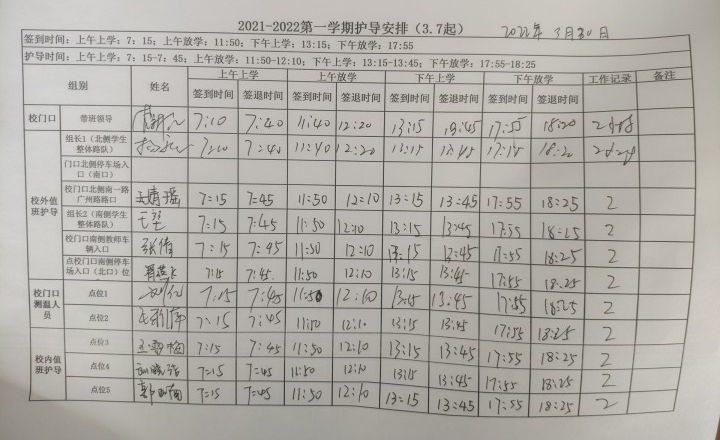 2021-2022第一学期护导安排（3.7起） 2022年3月30日
签到时间：上午上学：7：15；上午放学：11:50；下午上学：13:15；下午放学：17:55
护导时间：上午上学：7：15-7：45；上午放学：11:50-12:10；下午上学：13:15-13:45；下午放学：17:55-18:25
组别 姓名 上午上学 上午放学 下午上学 下午放学 工作记录 备注
签到时间 签退时间 签到时间 签退时间 签到时间 签退时间 签到时间 签退时间
校门口 带班领导 7:10 7:40 11:40 12:20 13:15 13:45 17:55 18:20
校外值班护导
组长1（北侧学生整体路队） 7:40 11:40 12:20 13:45
门口北侧停车场入口（南口）
校门口北侧南一路广州路路口 7:15 7:45 11:50 12:10 13:15 13:45 17:55 18:25 2
组长2（南侧学生整体路队） 7:15 7:45 11:50 12:10 13:15 13:45 17:55 18:25 2
校门口南侧教师车辆入口 张倩 7:15 7:45 11:50 12:10 13:15 13:45 17:55 18:25 2
点校门口南侧停车场入口（北口）位 7:15 7:45 11:50 12:10 13:15 13:45 17:55 18:25 2
校门口测温人员
点位1 7:15 7:45 11:50 12:10 13:15 13:45 17:55 18:25 2
点位2 7:15 7:45 11:50 12:10 13:15 13:45 17:55 18:25 2
校内值班护导
点位3 7:15 7:45 11:50 12:10 13:15 13:45 17:55 18:25 2
点位4 7:15 7:45 11:50 12:10 13:15 13:45 17:55 18:25 2
点位5 7:15 7:45 11:50 12:10 13:15 13:45 17:55 18:25 2